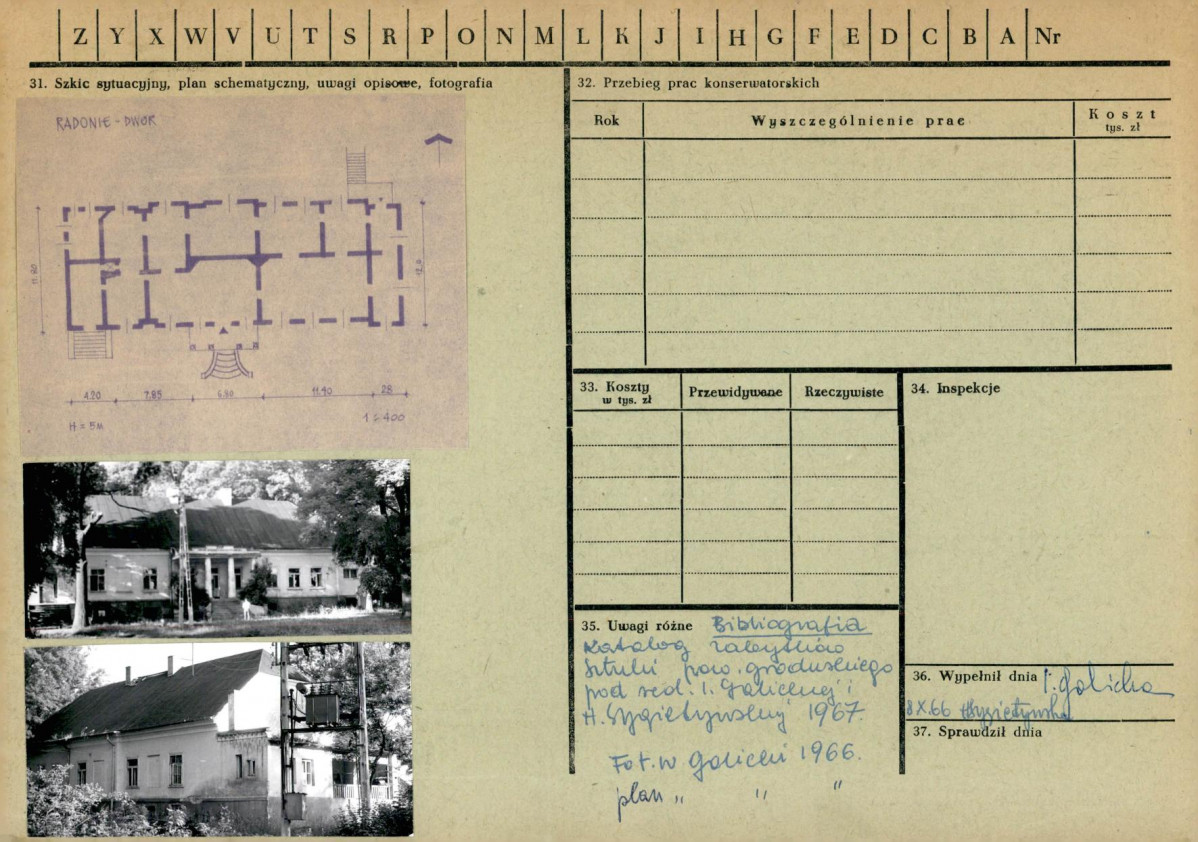 Z Y X W V U T S R P O N M L K J I H G F E D C B A Nr
31. Szkic sytuacyjny, plan schematyczny, uwagi opisowe, fotografia
RADONIE - DWÓR
4.20 7.85 6.80 11.40 28
H = 5M
1 : 400
32. Przebieg prac konserwatorskich
Rok
Wyszczególnienie prac
Koszt
tys. zł
33. Koszty
w tys. zł
Przewidywane
Rzeczywiste
34. Inspekcje
35. Uwagi różne Bibliografia
Katalog zabytków
Sztuki pow. grodziskiego
pod red. I. Galickiej i
H. Sygietyńskiej 1967.
Fot. W Galicki 1966.
plan " " "
36. Wypełnił dnia I. Galicka
8 X. 66 HSygietyńska
37. Sprawdził dnia